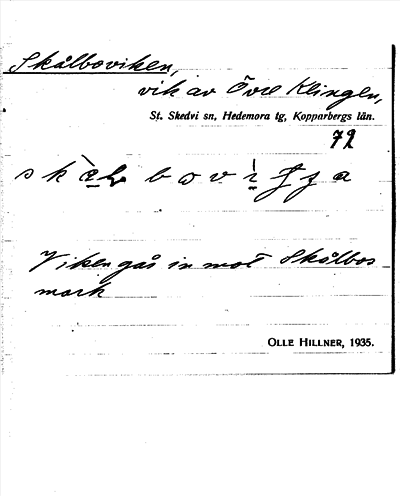 Skålboviken,
vik av Övre Klingen,
St. Skedvi sn, Hedemora tg, Kopparbergs län.
72
Viken gås in mot Skålbos
mark
OLLE HILLNER, 1935.